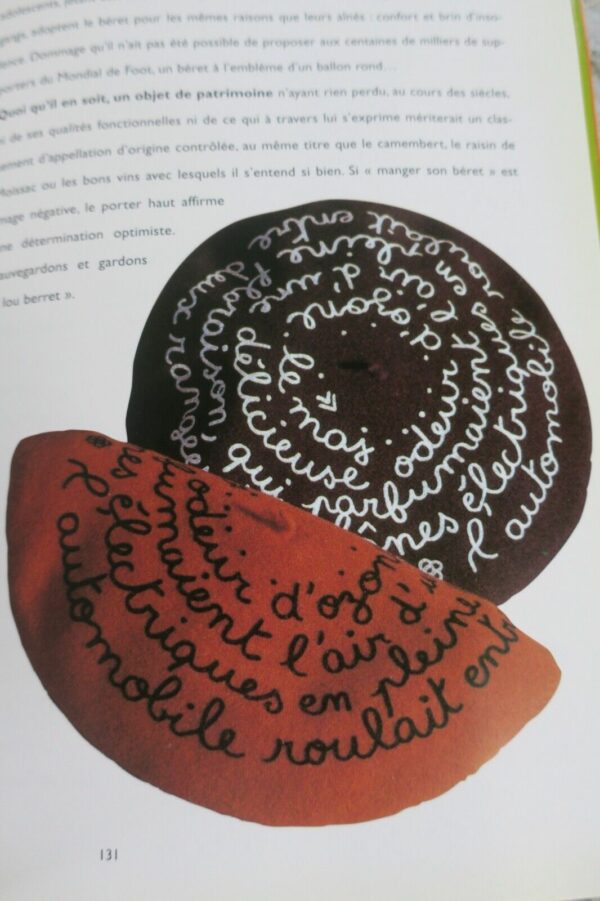 adoptent le béret pour les mêmes raisons que leurs aînés : confort et brin d'inso-
lence. Dommage qu'il n'ait pas été possible de proposer aux centaines de milliers de sup-
porters du Mondial de Foot, un béret à l'emblème d'un ballon rond...
Quoi qu'il en soit, un objet de patrimoine n'ayant rien perdu, au cours des siècles,
de ses qualités fonctionnelles ni de ce qui à travers lui s'exprime mériterait un clas-
sement d'appellation d'origine contrôlée, au même titre que le camembert, le raisin de
Moissac ou les bons vins avec lesquels il s'entend si bien. Si « manger son béret » est
mage négative, le porter haut affirme
ne détermination optimiste.
auvegardons et gardons
lou berret ».
l'automobile
roulait entre
deux
électriques en pleine
floraison,
qui parfumaient l'air d'une
délicieuse odeur d'ozone
le mas
odeur d'ozon
umaient l'air d'u
es électriques en pleine
l'automobile roulait entr
131